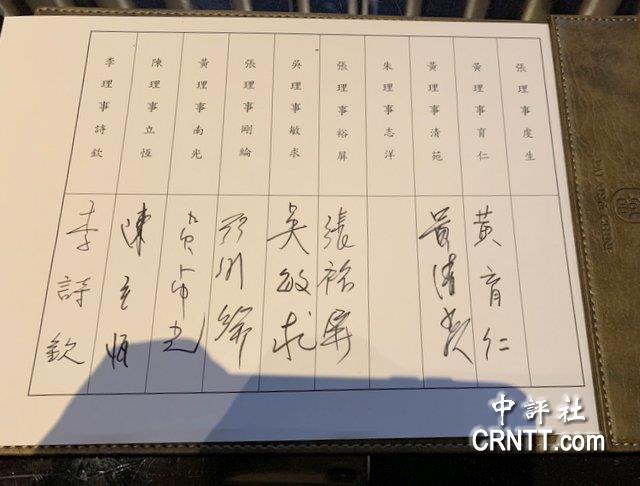 張理事虔生
黃理事育仁
黃理事清苑
朱理事志洋
張理事裕屏
吳理事敏求
張理事剛綸
黃理事南光
陳理事立恆
李理事詩欽
黃育仁
黃清苑
張裕屏
吳敏求
張剛綸
黃南光
陳立恆
李詩欽
中評社
CRNTT.com